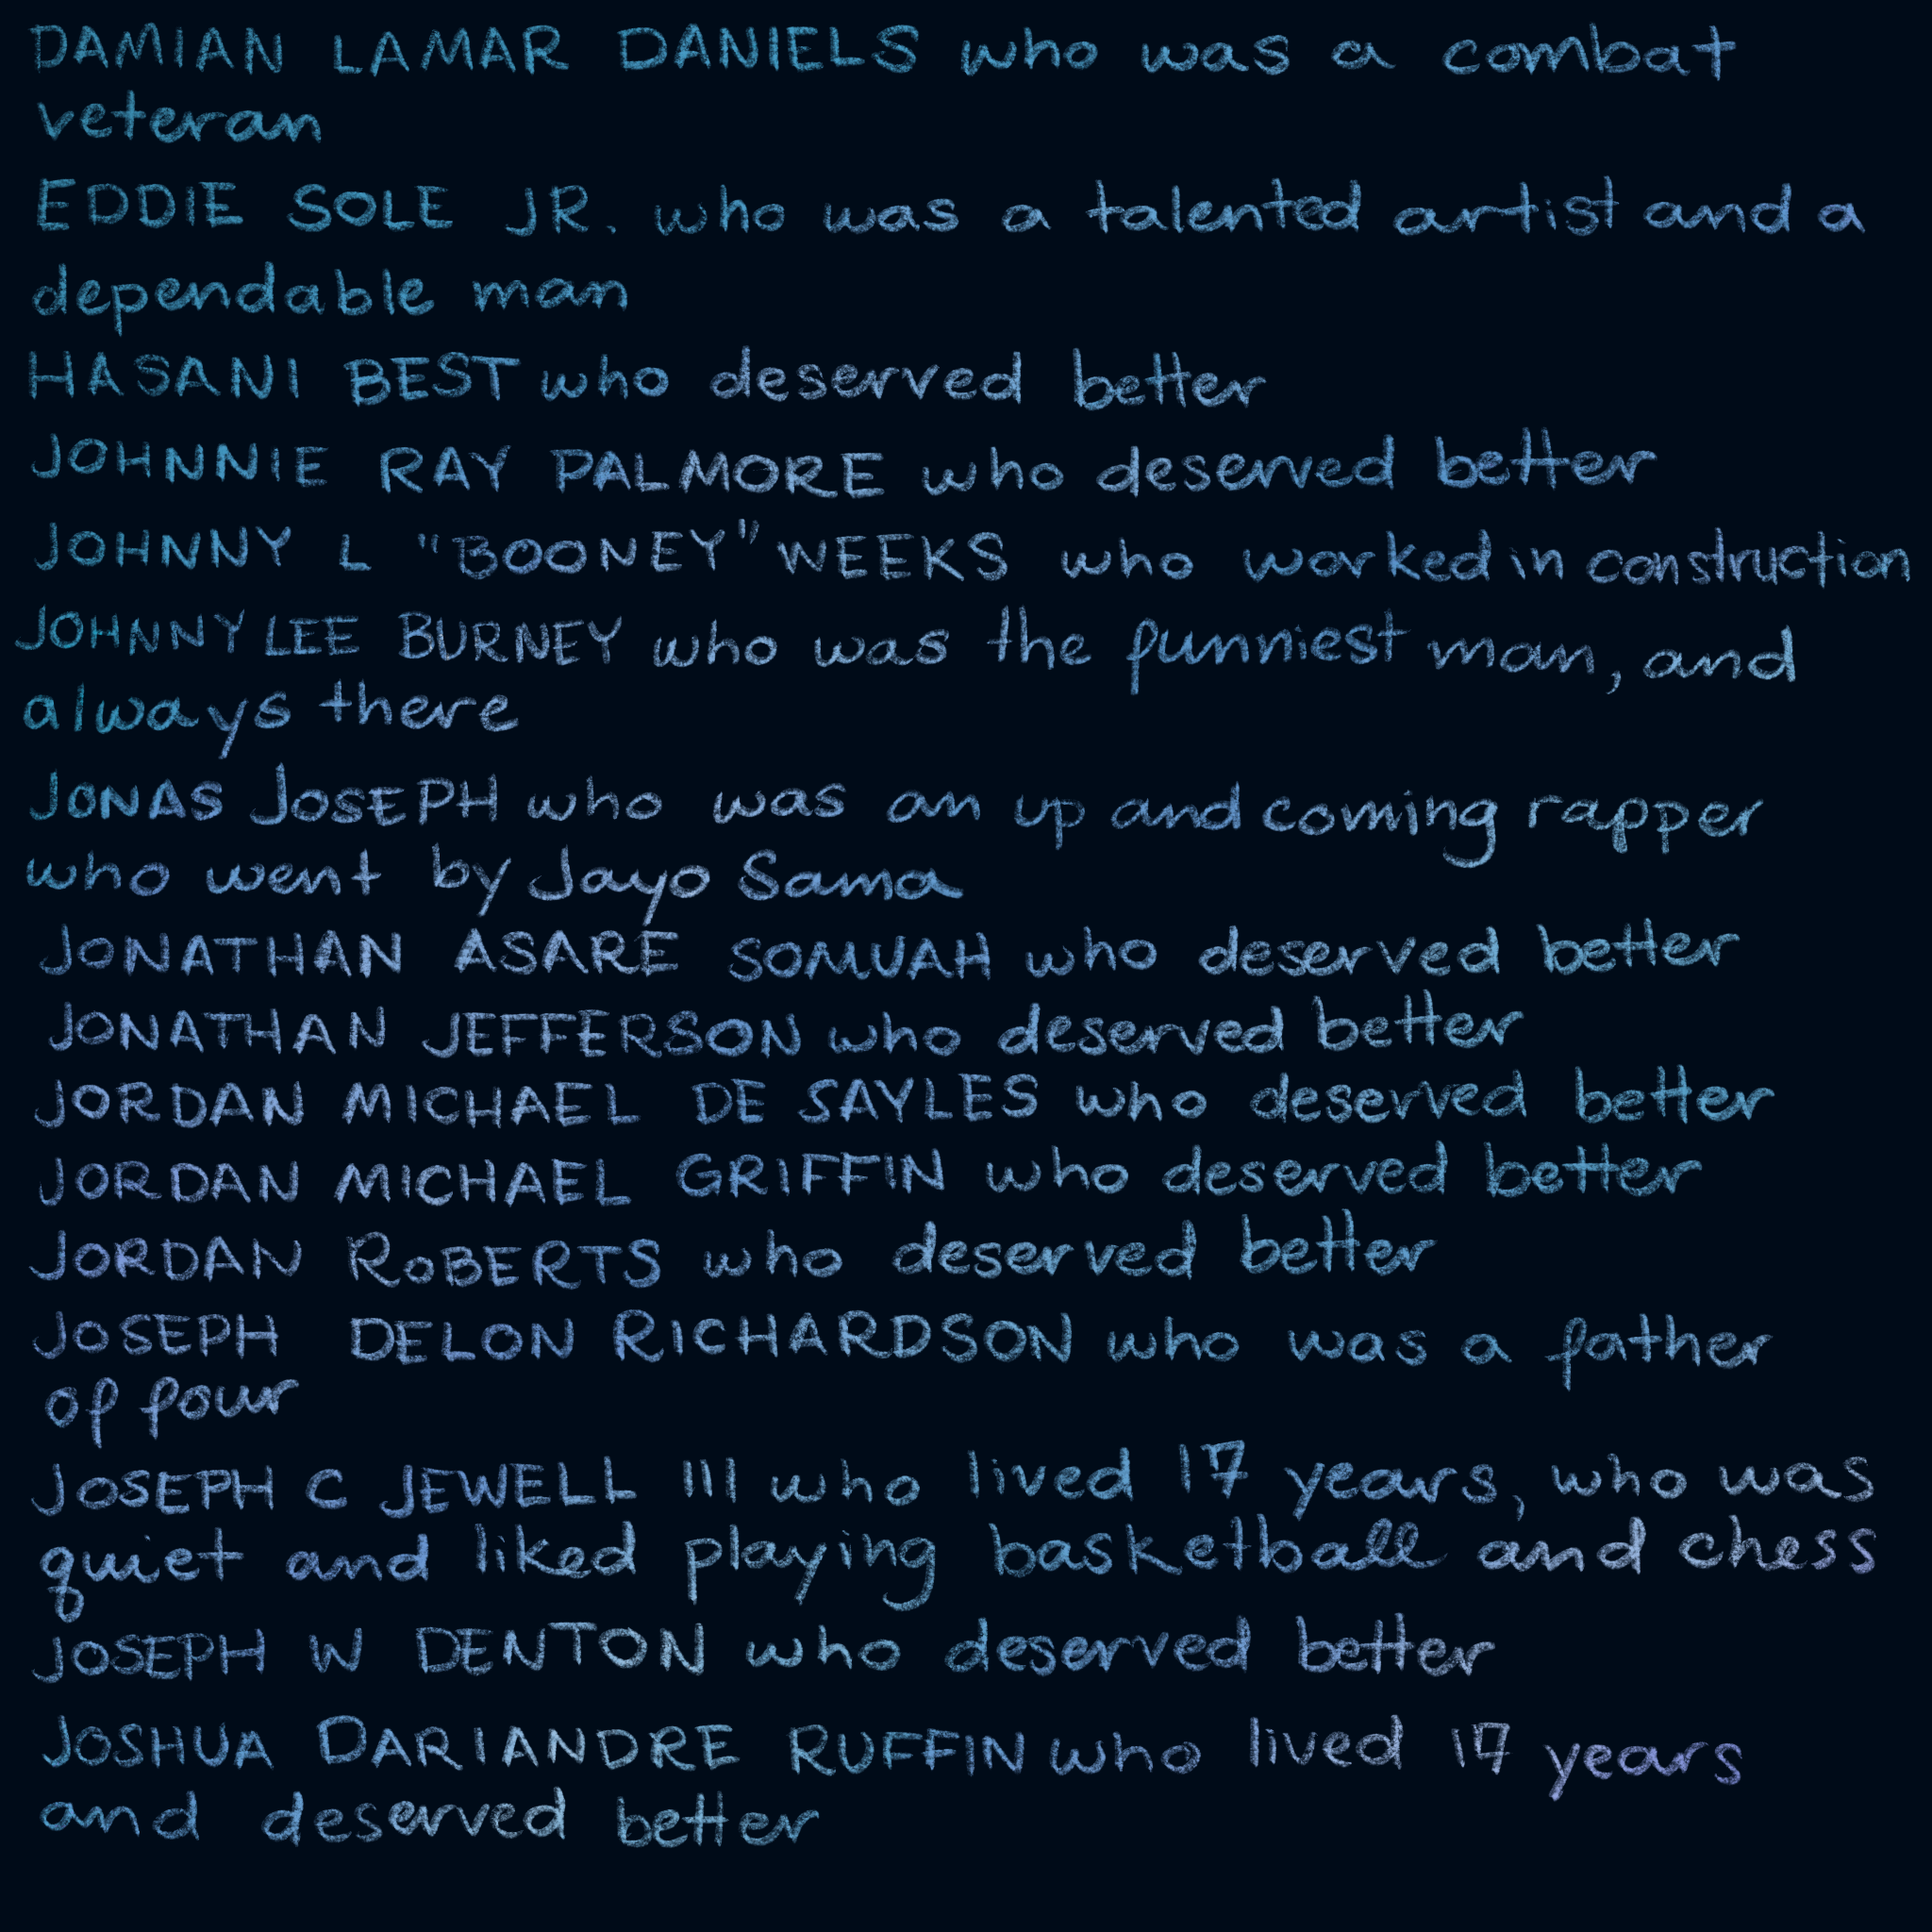 DAMIAN LAMAR DANIELS who was a combat
veteran
EDDIE SOLE JR. who was a talented artist and a
dependable man
HASANI BEST who deserved better
JOHNNIE RAY PALMORE who deserved better
JOHNNY L "BOONEY" WEEKS who worked in construction
JOHNNY LEE BURNEY who was the funniest man, and
always there
JONAS JOSEPH who was an up and coming rapper
who went by Jayo Sama
JONATHAN ASARE SOMUAH who deserved better
JONATHAN JEFFERSON who deserved better
JORDAN MICHAEL DE SAYLES who deserved better
JORDAN MICHAEL GRIFFIN who deserved better
JORDAN ROBERTS who deserved better
JOSEPH DELON RICHARDSON who was a father
of four
JOSEPH C JEWELL III who lived 17 years, who was
quiet and liked playing basketball and chess
JOSEPH W DENTON who deserved better
JOSHUA DARIANDRE RUFFIN who lived 17 years
and deserved better